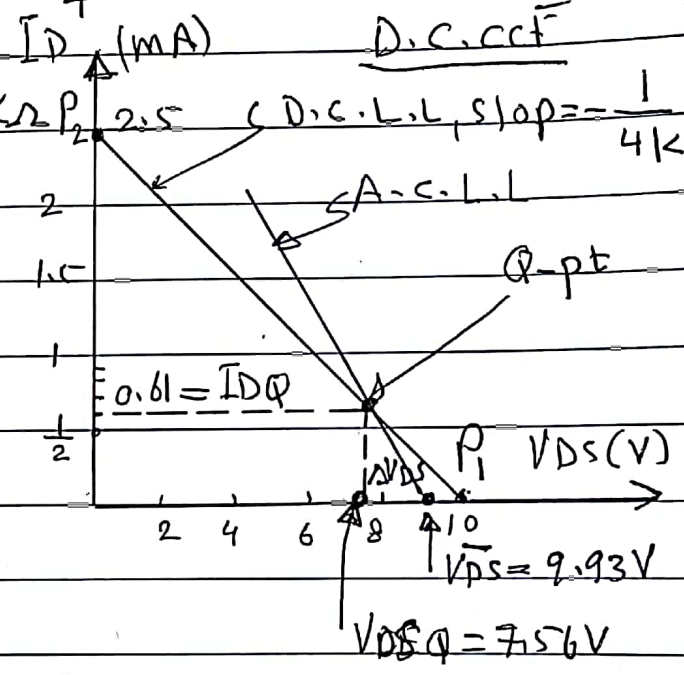 ID (mA)
D.C.ccT
Ω P2 2.5
D.C.L.L, Slop=-1/4K
2
A.C.L.L
1.5
Q-pt
1
0.61=IDQ
1/2
P1 VDS(V)
ΔVDS
2 4 6 8 10
VDS=9.93V
VDSQ=7.56V